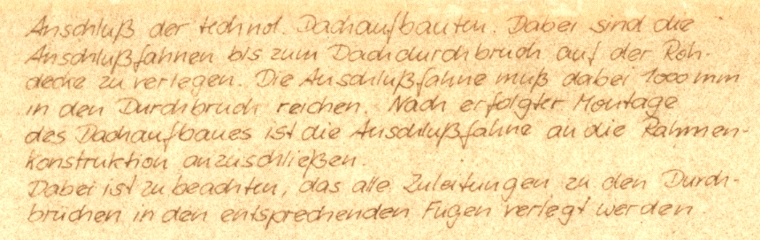 Anschluß der technol. Dachaufbauten. Dabei sind die
Anschlußfahnen bis zum Dachdurchbruch auf der Roh-
decke zu verlegen. Die Anschlußfahne muß dabei 1000 mm
in den Durchbruch reichen. Nach erfolgter Montage
des Dachaufbaues ist die Anschlußfahne an die Rahmen-
konstruktion anzuschließen.
Dabei ist zu beachten, das alle Zuleitungen zu den Durch-
brüchen in den entsprechenden Fugen verlegt werden.